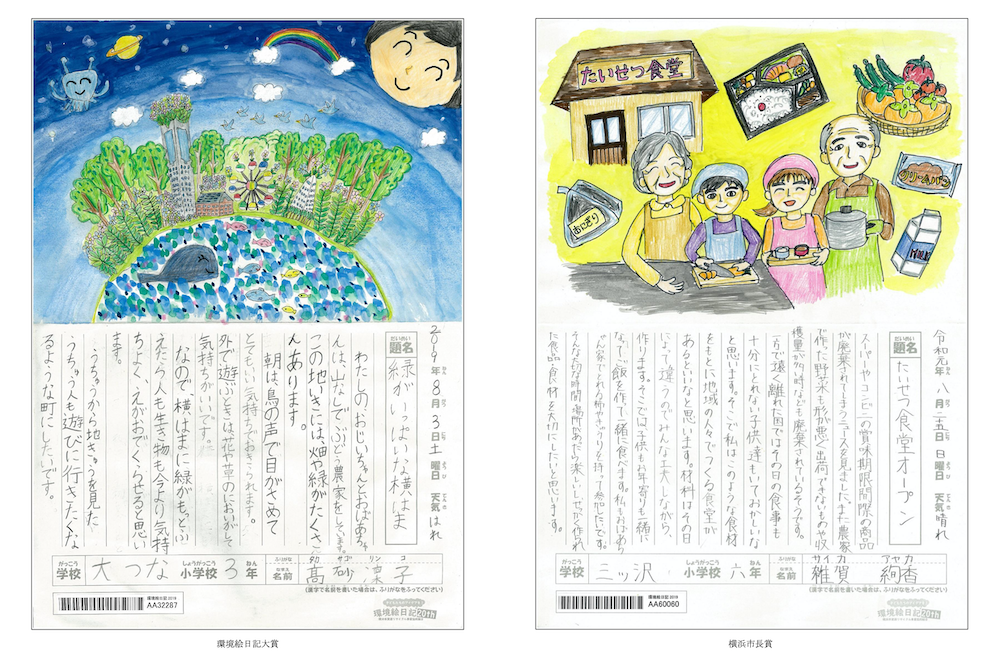 2019年 8月 3日 土曜日 天気 はれ
だいめい
題名
緑がいっぱいな横はま
わたしの、おじいちゃんとおばあちゃ
んは、山なしで、ぶどう農家をしています。
この地いきには、畑や緑がたくさ
んあります。
朝は、鳥の声で目がさめて
とてもいい気持ちでおこられます。
外で遊ぶときは、花や草のにおいがして
気持ちがいいです。
なので、横はまに緑がもっとふ
えたら人も生き物も今より気持
ちよく、えがおでくらせると思い
ます。
うちゅうから地きゅうを見た
うちゅう人も遊びに行きたくな
るような町にしたいです。
がっこう
学校
大つな
しょうがっこう
小学校
3
ねん
年
なまえ
名前
子
環境絵日記 2019
AA32287
環境絵日記 20th
環境絵日記大賞
たいせつ食堂
おにぎり
クリームパン
MILK
令和元年 八月 二五日 日曜日 天気 晴れ
だいめい
題名
たいせつ食堂オープン
スーパーやコンビニの賞味期限間際の商品
が廃棄されてしまうニュースを見ました。また、農家
で作った野菜も形が悪く出荷できないものや収
穫量が多い時なども廃棄されているそうです。
一方で遠く離れた国ではその日の食事も
十分にとれない子供達もいておかしいな
と思います。そこで私はこのような食材
をもとに地域の人々でつくる食堂が
あるといいなと思います。材料はその日
によって違うのでみんなで工夫しながら、
作ります。そこでは子供もお年寄りも一緒に
なってご飯を作って一緒に食べます。私もおばあち
がっこう
学校
三ッ沢
しょうがっこう
小学校
六
ねん
年
なまえ
名前
サイカ アヤカ
雑賀 絢香
(漢字で名前を書いた場合は、ふりがなをふってください)
環境絵日記 2019
AA60060
環境絵日記 20th
横浜市長賞